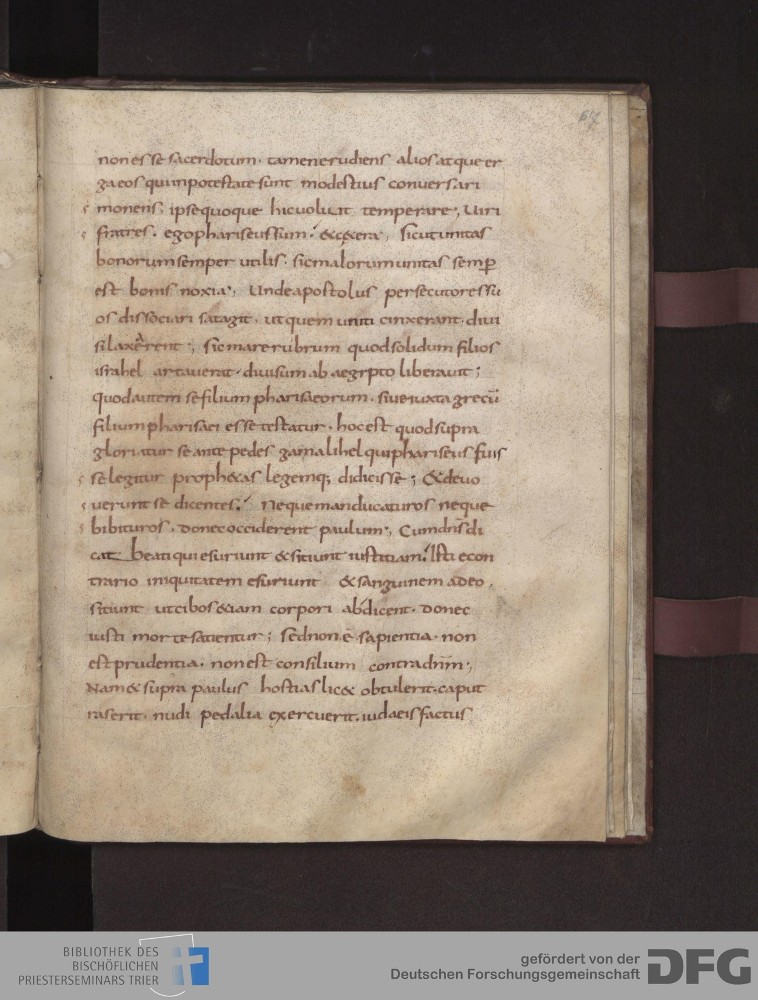 67
non esse sacerdotum· tamen erudiens alios atque er
ga eos qui in potestate sunt modestius conversari
monens; ipse quoque hic voluit temperare; Uiri
fratres· ego phariseus sum; &cetera; sicut unitas
bonorum semper utilis· sic malorum unitas semp
est bonis noxia·, Unde apostolus persecutores su
os dissociari satagit· ut quem uniti cinxerant· diui
si laxarent·, sic mare rubrum quod solidum filios
israhel artauerat· diuisum ab aegypto liberauit;
quod autem se filium pharisaeorum· siue iuxta grecū
filium pharisaei esse testatur· hoc est quod supra
gloriatur se ante pedes gamalihel qui phariseus fuis
se legitur proph&as legemq; didicisse; & deuo
uerunt se dicentes; Neque manducaturos neque
bibituros· donec occiderent paulum·, Cum dn̄s di
cat Beati qui esuriunt & sitiunt iustitiam; Isti econ
trario iniquitatem esuriunt & sanguinem adeo
sitiunt ut cibos &iam corpori abdicent· donec
iusti morte satientur; sed non ē sapientia· non
est prudentia· non est consilium contra dn̄m·,
Nam & supra paulus hostias lic& obtulerit· caput
raserit· nudi pedalia exercuerit· iudaeis factus
BIBLIOTHEK DES
BISCHÖFLICHEN
PRIESTERSEMINARS TRIER
gefördert von der
Deutschen Forschungsgemeinschaft
DFG